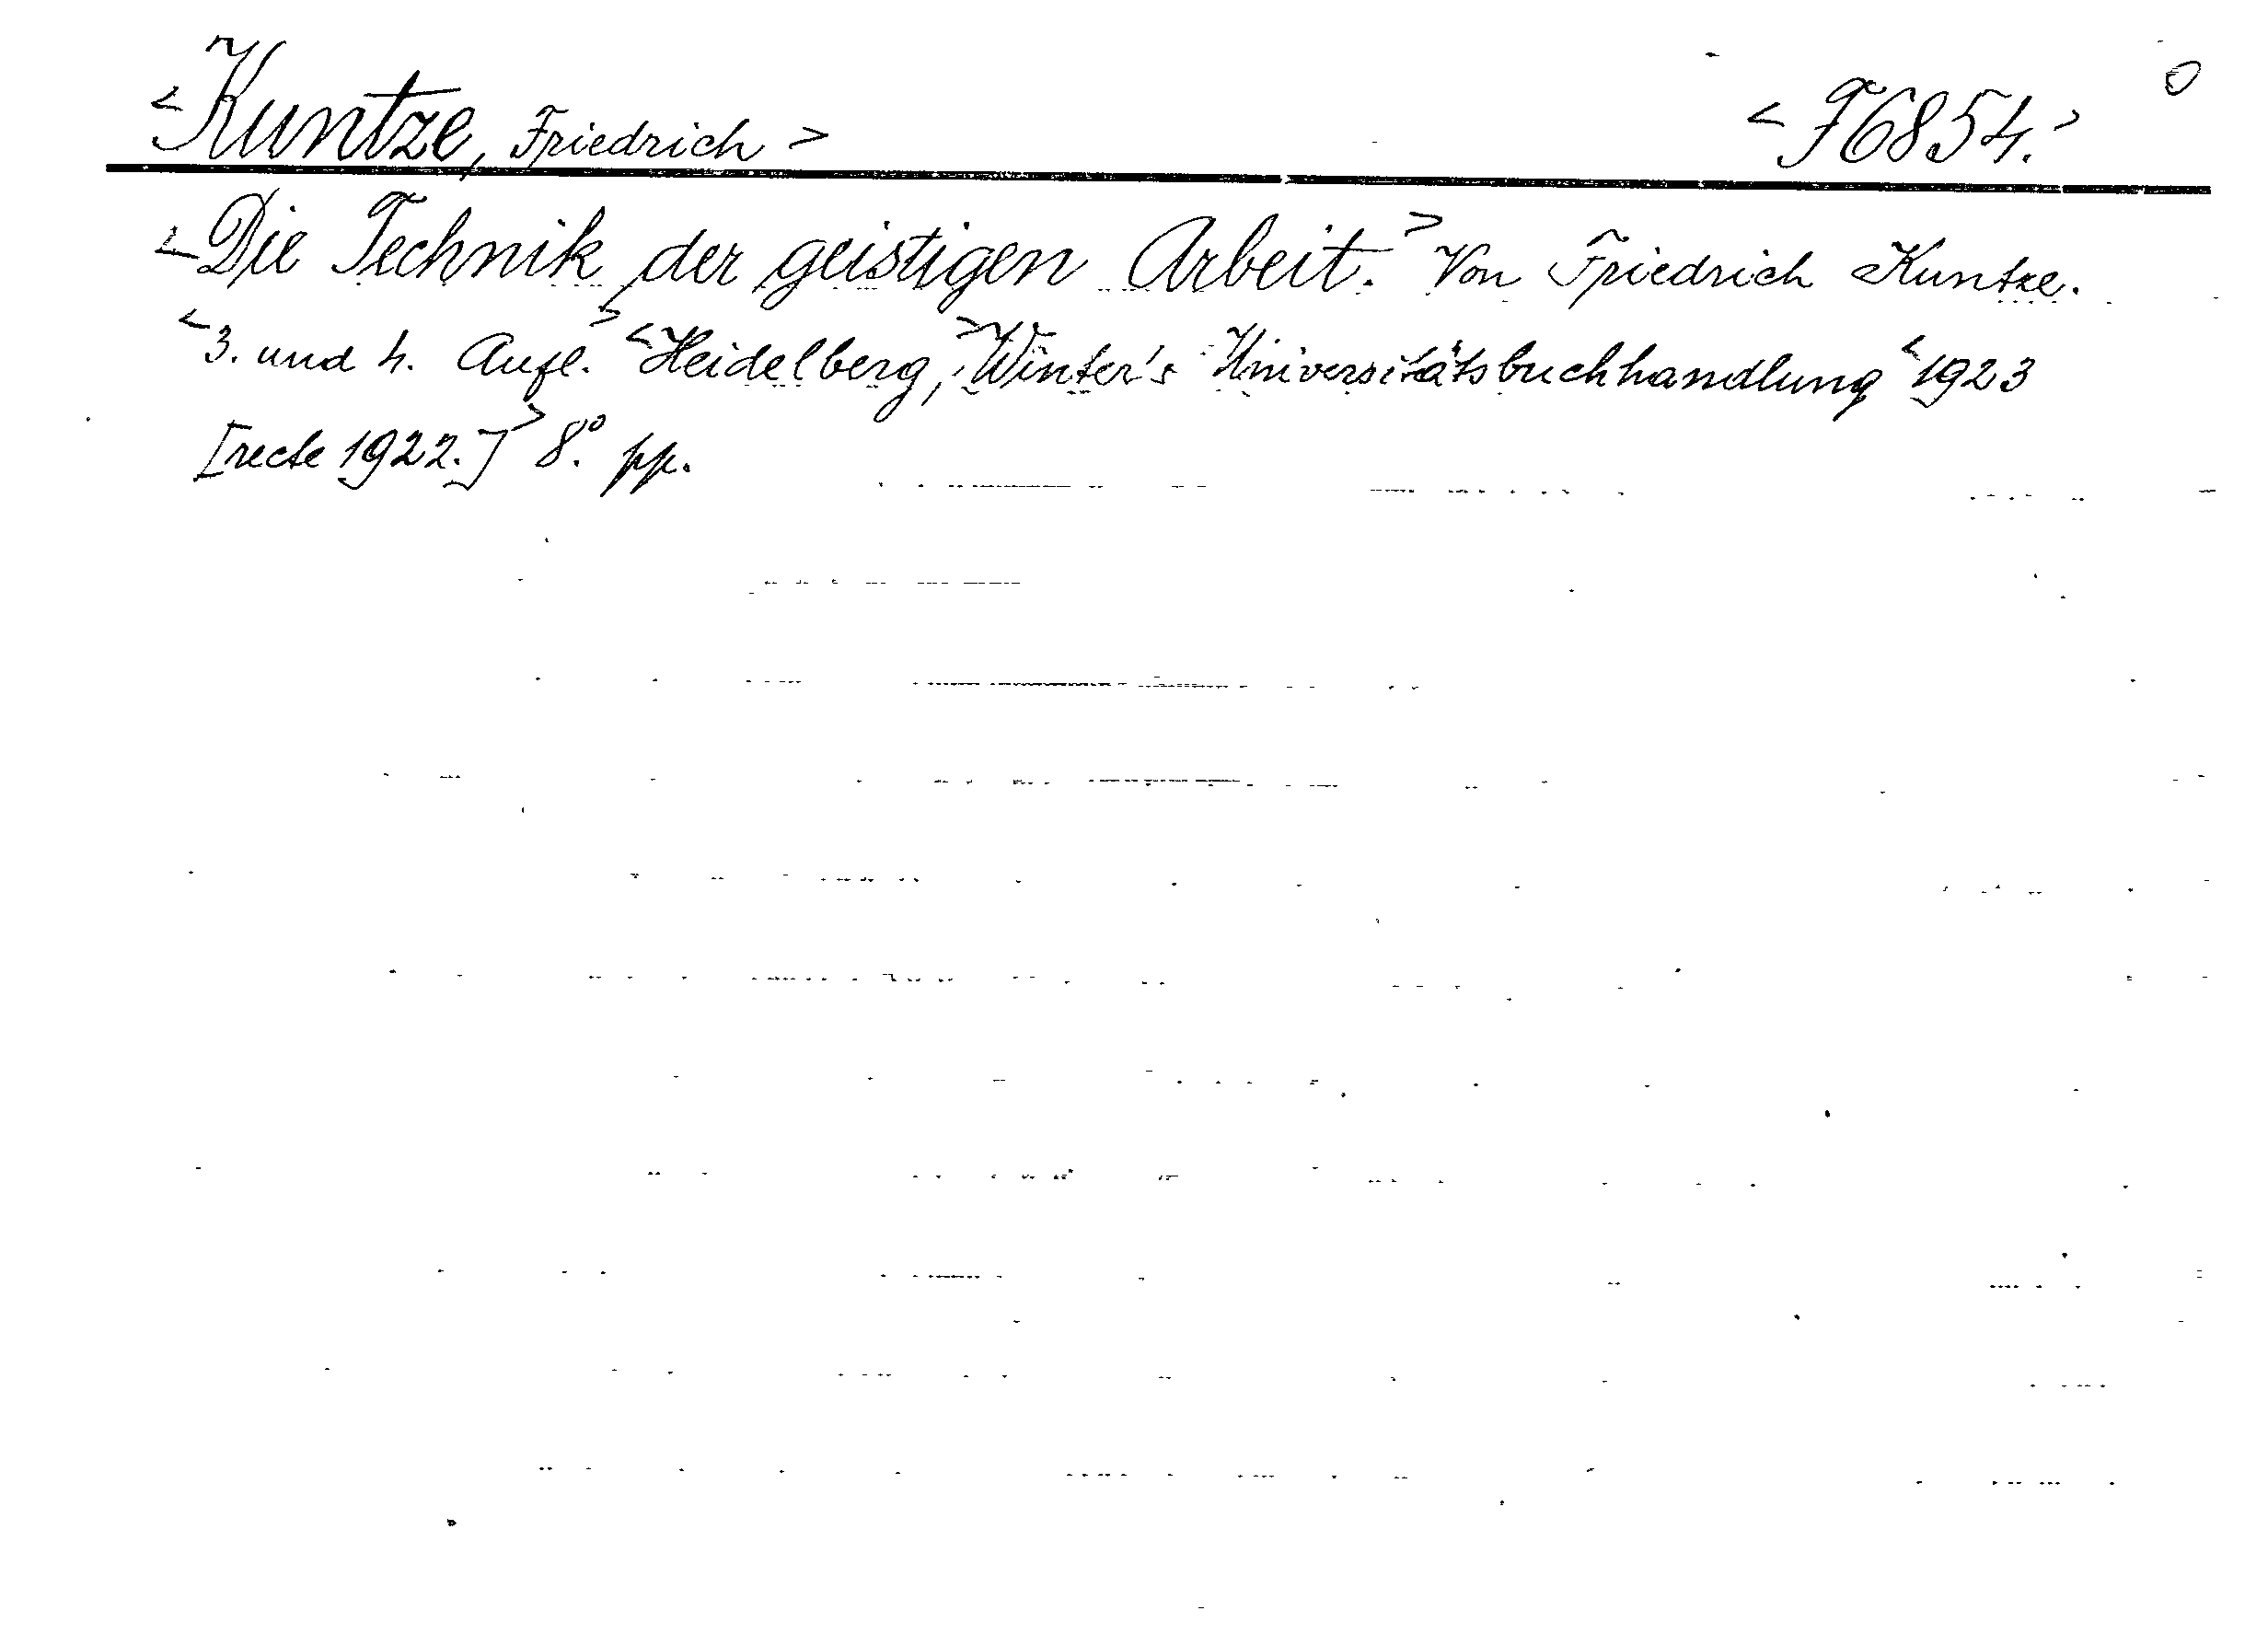 <Kuntze, Friedrich> <F6854.> 0
<Die Technik der geistigen Arbeit.> Von Friedrich Kuntze.
<3. und 4. Aufl.> <Heidelberg,> Winter's Universitätsbuchhandlung <1923
[recte 1922.]> 8.° pp.